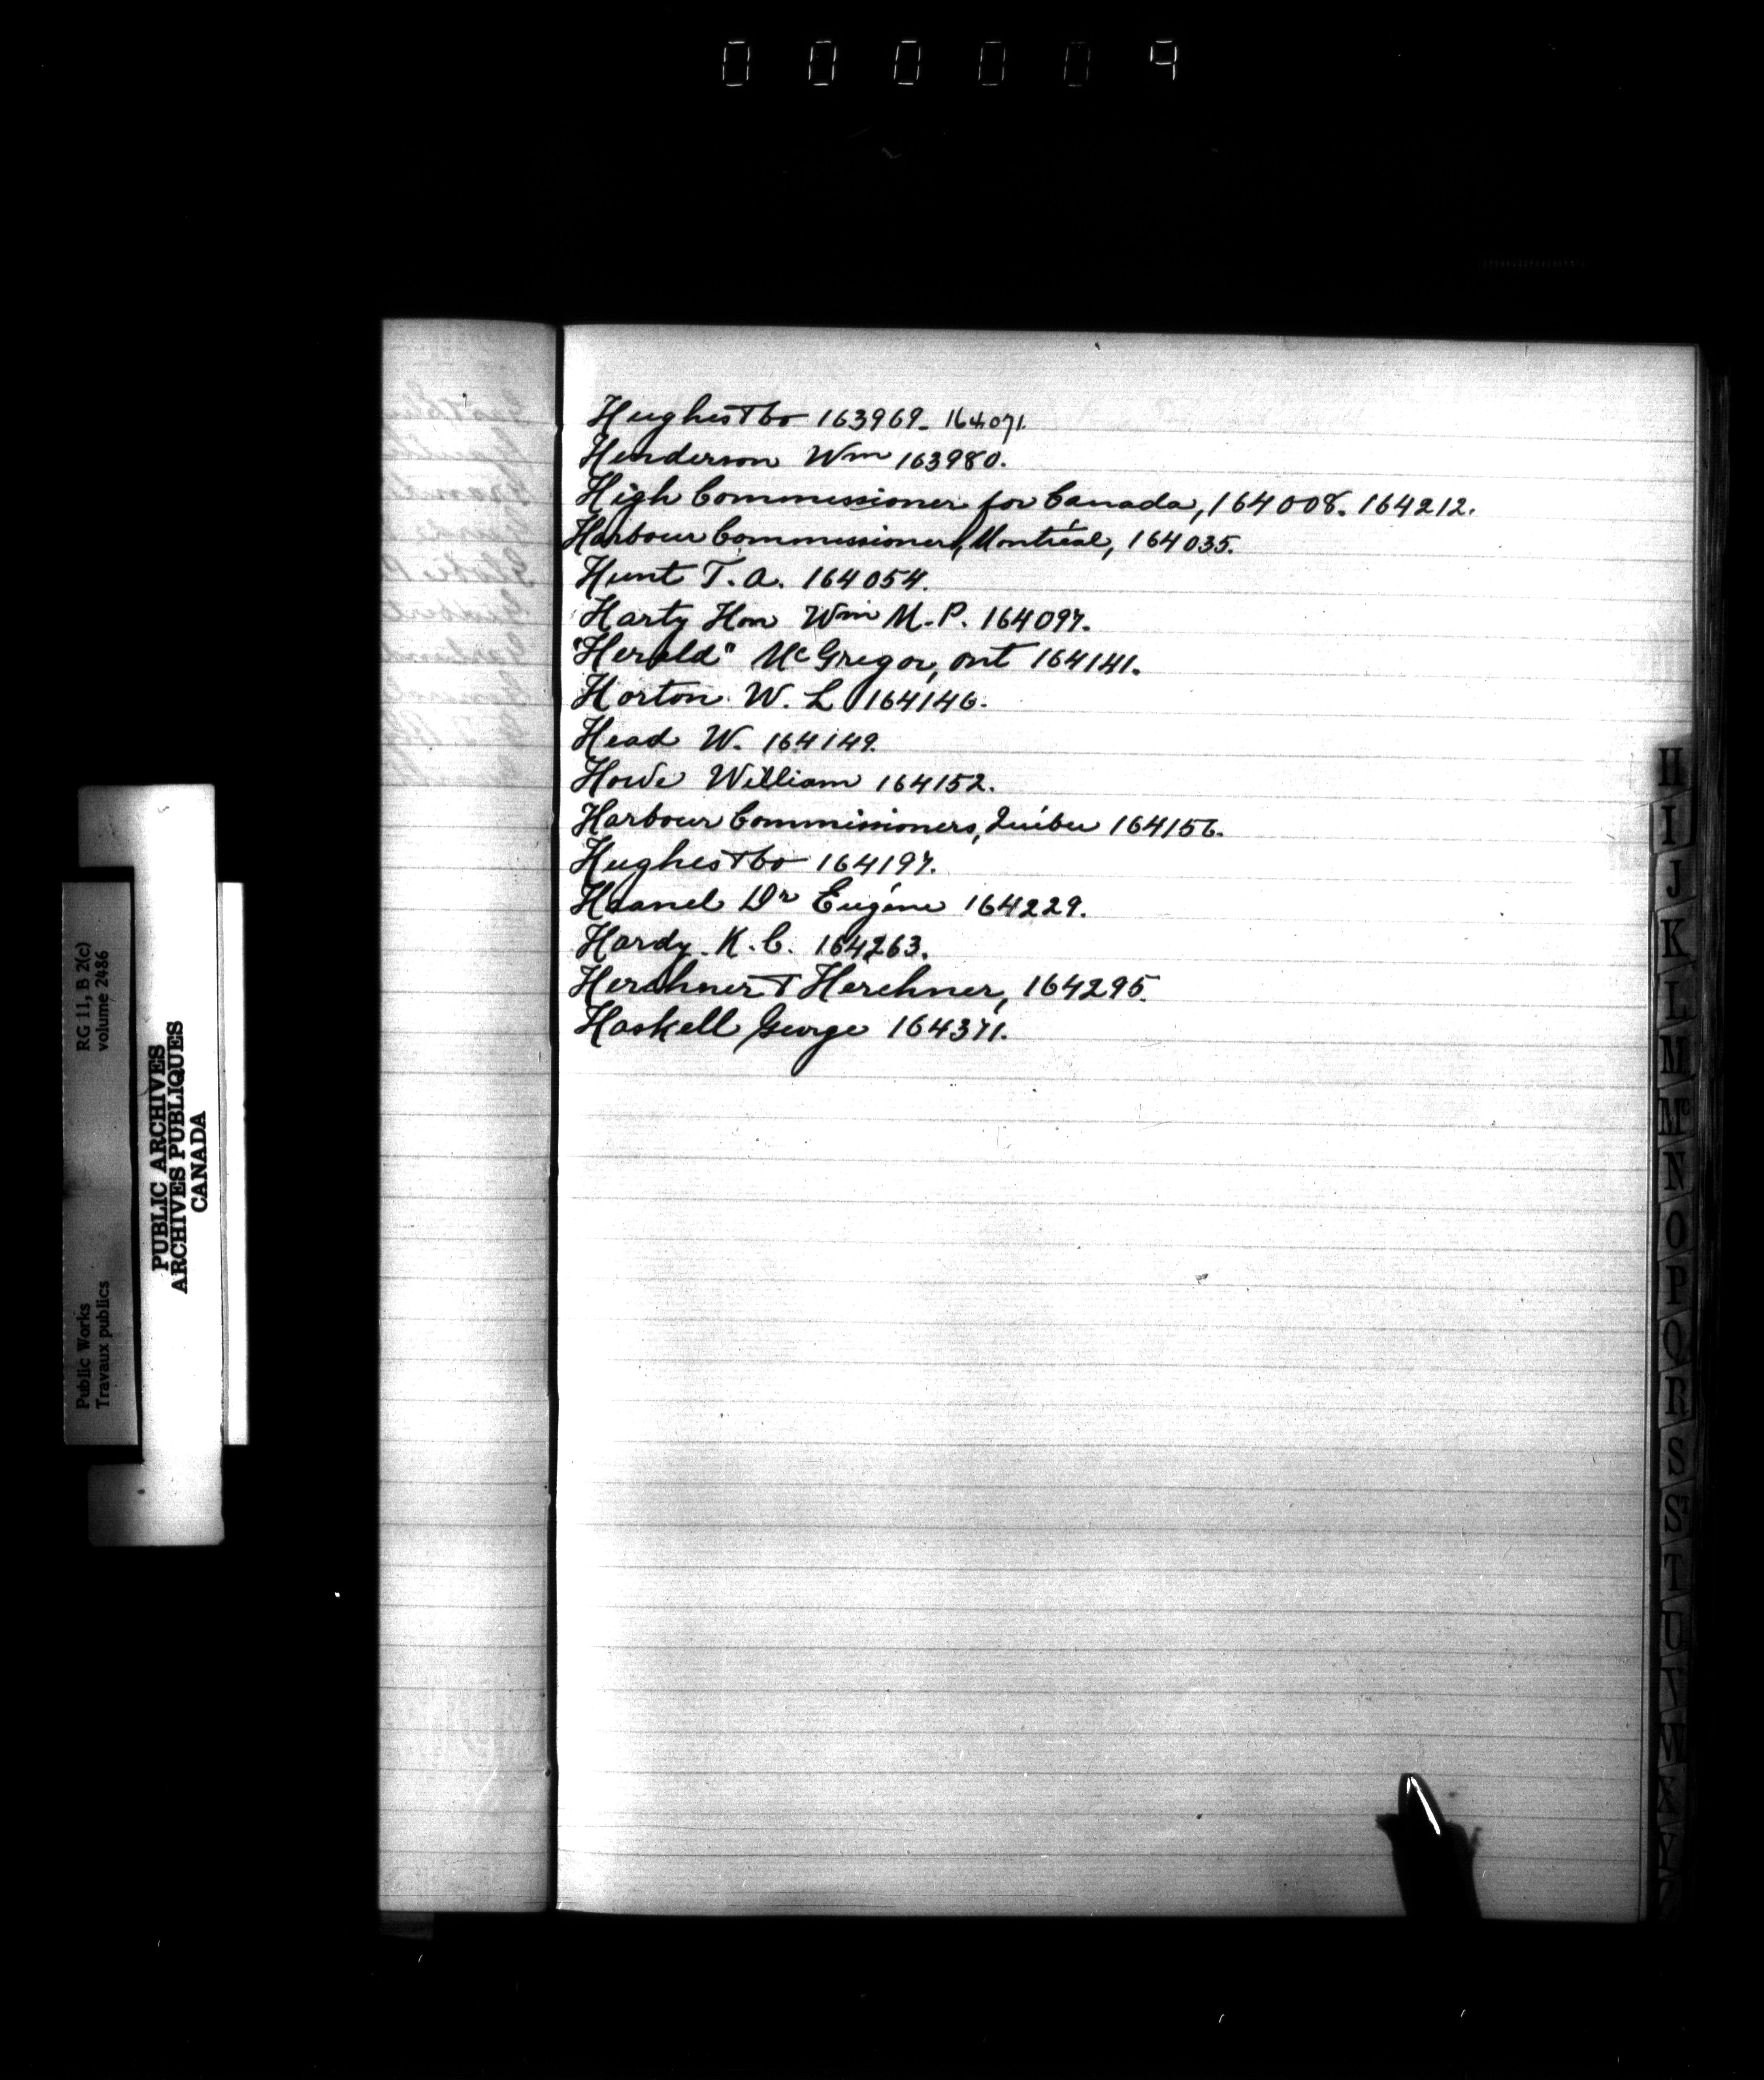 000009
Hughes & Co 163969. 164071.
Henderson Wm 163980.
High Commissioner for Canada, 164008. 164212.
Harbour Commissioners, Montréal, 164035.
Hunt T. A. 164054.
Harty Hon Wm M.P. 164097.
"Herald" McGregor, Ont 164141.
Horton W. L 164146.
Head W. 164149.
Howe William 164152.
Harbour Commissioners, Québec 164156.
Hughes & Co 164197.
Haanel Dr Eugène 164229.
Hardy K. C. 164263.
Herchner & Herchner, 164295.
Haskell George 164371.
H
I
J
K
L
M
Mc
N
O
P
Q
R
S
ST
T
U
V
W
X
Y
RG 11, B 2(c)
volume 2486
Public Works
Travaux publics
PUBLIC ARCHIVES
ARCHIVES PUBLIQUES
CANADA